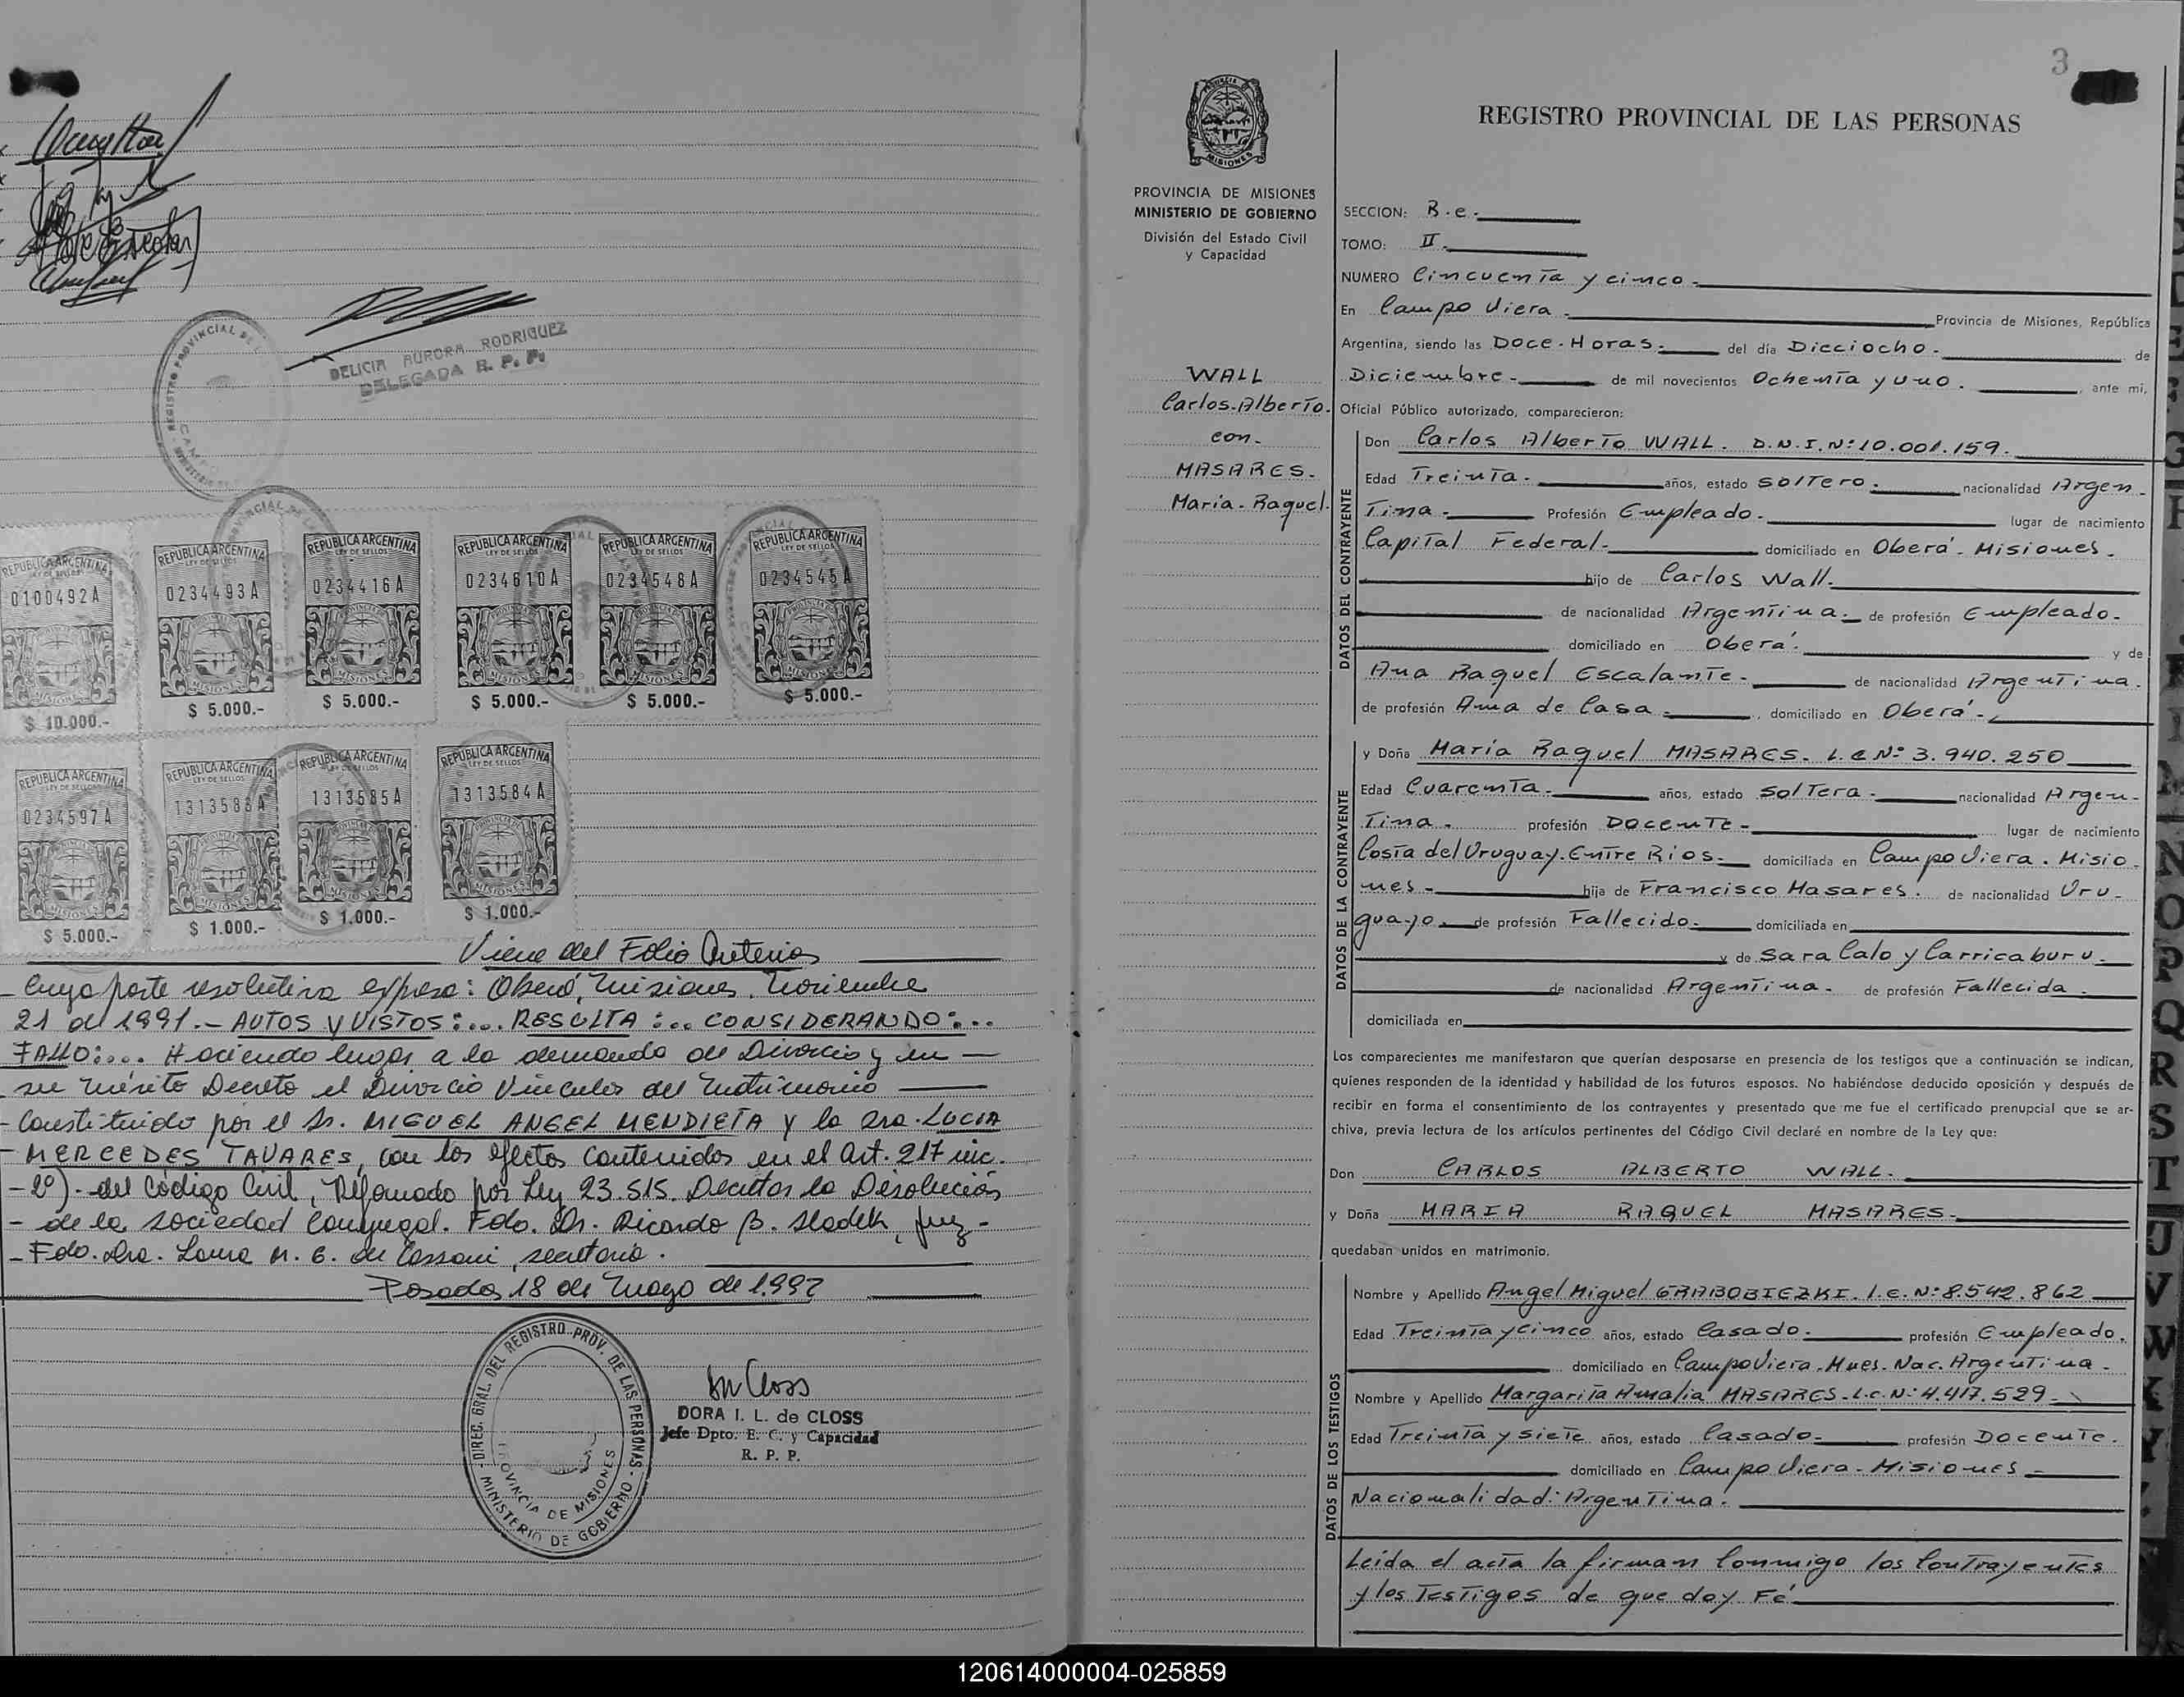 DELICIA AURORA RODRIGUEZ
DELEGADA R. P. P.
REPUBLICA ARGENTINA
LEY DE SELLOS
0100492A
MISIONES
$ 10.000.-
REPUBLICA ARGENTINA
LEY DE SELLOS
0234493A
MISIONES
$ 5.000.-
REPUBLICA ARGENTINA
LEY DE SELLOS
0234416A
MISIONES
$ 5.000.-
REPUBLICA ARGENTINA
LEY DE SELLOS
0234610A
MISIONES
$ 5.000.-
REPUBLICA ARGENTINA
LEY DE SELLOS
0234548A
MISIONES
$ 5.000.-
REPUBLICA ARGENTINA
LEY DE SELLOS
0234545A
MISIONES
$ 5.000.-
REPUBLICA ARGENTINA
LEY DE SELLOS
0234597A
MISIONES
$ 5.000.-
REPUBLICA ARGENTINA
LEY DE SELLOS
1313583A
MISIONES
$ 1.000.-
REPUBLICA ARGENTINA
LEY DE SELLOS
1313585A
MISIONES
$ 1.000.-
REPUBLICA ARGENTINA
LEY DE SELLOS
1313584A
MISIONES
$ 1.000.-
Viene del Folio Anterior
- Cuya parte resolutiva expresa: Oberá, Misiones, Noviembre
21 de 1991.- AUTOS Y VISTOS:... RESULTA:... CONSIDERANDO:...
FALLO:... Haciendo lugar a la demanda de Divorcio y en
su mérito Decreto el Divorcio Vincular del Matrimonio
- Constituido por el Sr. MIGUEL ANGEL MENDIETA y la Sra. LUCIA
- MERCEDES TAVARES, con los efectos contenidos en el art. 217 inc.
- 2º).- del Código Civil, Reformado por Ley 23.515. Decretar la Disolución
- de la sociedad Conyugal. Fdo. Dr. Ricardo B. Sladek, Juez-
- Fdo. Dra. Laura M. B. de Cassoni, secretaria.
Posadas 18 de Mayo de 1.992
DIREC. GRAL. DEL REGISTRO PROV. DE LAS PERSONAS
PROVINCIA DE MISIONES
MINISTERIO DE GOBIERNO
DORA I. L. de CLOSS
Jefe Dpto. E. C. y Capacidad
R. P. P.
3
REGISTRO PROVINCIAL DE LAS PERSONAS
MISIONES
PROVINCIA DE MISIONES
MINISTERIO DE GOBIERNO
División del Estado Civil
y Capacidad
WALL
Carlos-Alberto.
con-
MASARES.
María-Raquel.
SECCION: B.e.
TOMO: II.
NUMERO Cincuenta y cinco-
En Campo Viera. Provincia de Misiones, República
Argentina, siendo las Doce-Horas. del día Dicciocho. de
Diciembre- de mil novecientos Ochenta y uno. , ante mi,
Oficial Público autorizado, comparecieron:
DATOS DEL CONTRAYENTE
Don Carlos Alberto WALL. D.N.I.Nº:10.001.159.
Edad Treinta- años, estado soltero. nacionalidad Argen-
tina- Profesión Empleado- lugar de nacimiento
Capital Federal- domiciliado en Oberá- Misiones.
hijo de Carlos Wall.
de nacionalidad Argentina. de profesión Empleado-
domiciliado en Oberá. y de
Ana Raquel Escalante- de nacionalidad Argentina.
de profesión Ama de Casa- , domiciliado en Oberá-
DATOS DE LA CONTRAYENTE
y Doña María Raquel MASARES. L.C Nº 3.940.250
Edad Cuarenta- años, estado soltera- nacionalidad Argen-
tina. profesión Docente- lugar de nacimiento
Costa del Uruguay. Entre Rios- domiciliada en Campo Viera. Misio-
nes- hija de Francisco Masares. de nacionalidad Uru-
guayo. de profesión Fallecido. domiciliada en
y de Sara Calo y Carricaburu.
de nacionalidad Argentina- de profesión Fallecida.
domiciliada en
Los comparecientes me manifestaron que querían desposarse en presencia de los testigos que a continuación se indican,
quienes responden de la identidad y habilidad de los futuros esposos. No habiéndose deducido oposición y después de
recibir en forma el consentimiento de los contrayentes y presentado que me fue el certificado prenupcial que se ar-
chiva, previa lectura de los artículos pertinentes del Código Civil declaré en nombre de la Ley que:
Don CARLOS ALBERTO WALL.
y Doña MARIA RAQUEL MASARES-
quedaban unidos en matrimonio.
DATOS DE LOS TESTIGOS
Nombre y Apellido Angel Miguel GRABOBIEZKI. l.e. Nº:8.542.862
Edad Treinta y cinco años, estado Casado. profesión Empleado.
domiciliado en Campo Viera. Mnes. Nac. Argentina-
Nombre y Apellido Margarita Amalia MASARES-L.C.Nº:4.417.529-
Edad Treinta y siete años, estado Casado- profesión Docente.
domiciliado en Campo Viera- Misiones-
Nacionalidad: Argentina.
Leída el acta la firman Conmigo los Contrayentes
y los Testigos de que doy Fé.
120614000004-025859